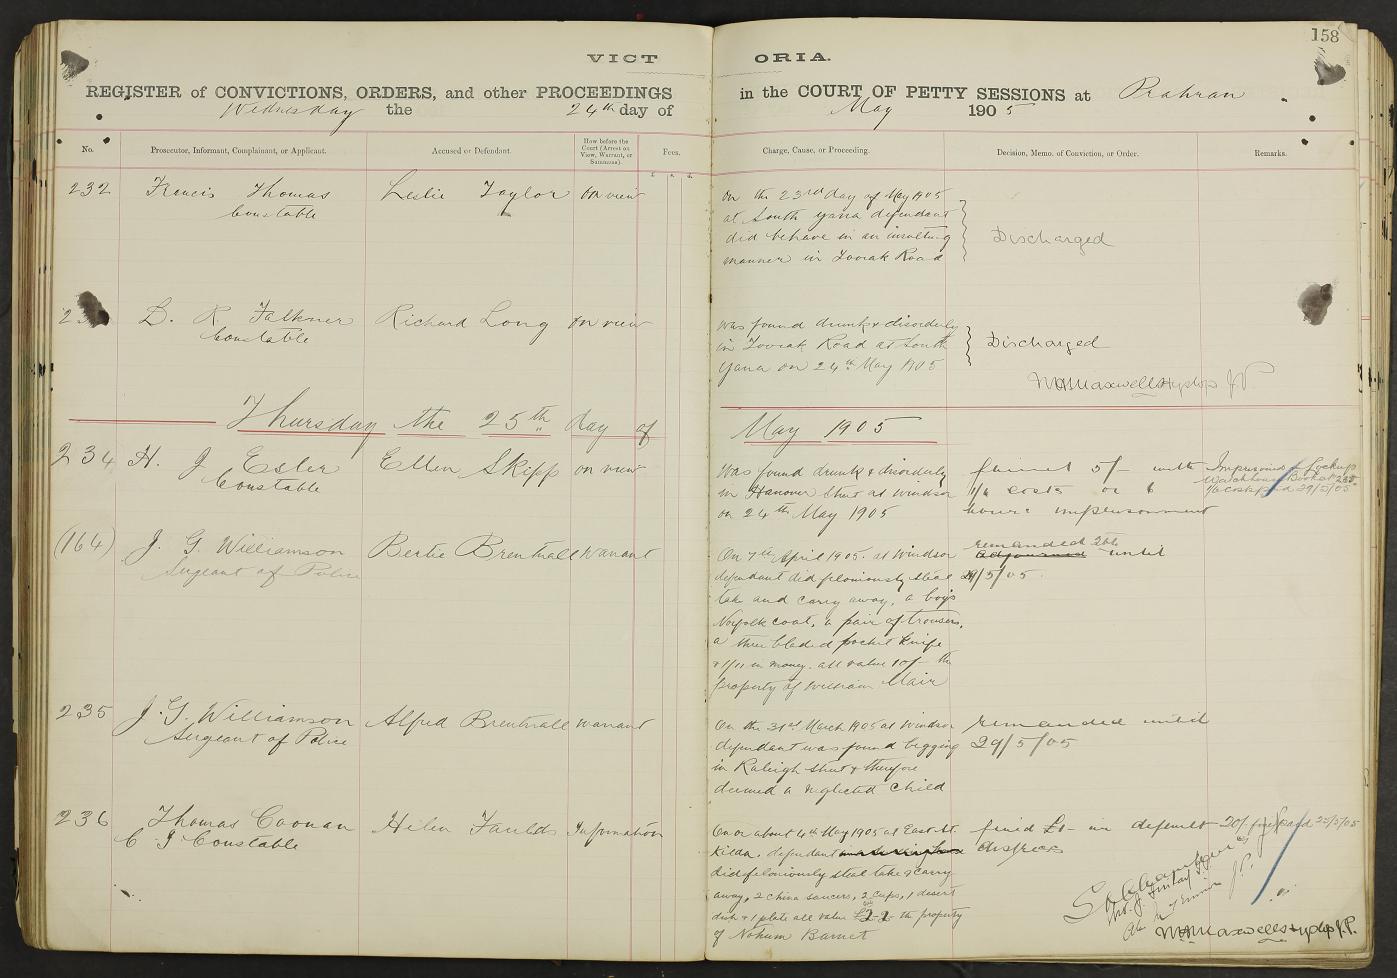 158
VICTORIA.
REGISTER of CONVICTIONS, ORDERS, and other PROCEEDINGS in the COURT OF PETTY SESSIONS at Prahran
Wednesday the 24th day of May 1905
No.
Prosecutor, Informant, Complainant, or Applicant.
Accused or Defendant.
How before the
Court (Arrest on
View, Warrant, or
Summons).
Fees.
£ s. d.
Charge, Cause, or Proceeding.
Decision, Memo. of Conviction, or Order.
Remarks.
232
Francis Thomas
Constable
Leslie Taylor
On view
On the 23rd day of May 1905
at South Yarra defendant
did behave in an insulting
manner in Toorak Road
Discharged
2
D. R. Falkner
Constable
Richard Long
On view
Was found drunk & disorderly
in Toorak Road at South
Yarra on 24th May 1905
Discharged
Maxwell Hyslop J.P.
Thursday the 25th day of May 1905
234
H. J Esler
Constable
Ellen Skipp
on view
Was found drunk & disorderly
in Hanover Street at Windsor
on 24th May 1905
fined 5/- with
1/6 costs or 6
hours imprisonment
Imprisoned Lockup
Watchhouse Book at 235
costs paid 29/5/05
(164)
J. G. Williamson
Sergeant of Police
Bertie Brenthall
warrant
On 7th April 1905. at Windsor
defendant did feloniously steal
take and carry away, a boys
Norfolk coat, a pair of trousers,
a three bladed pocket knife
& 1/11 in money. all value 10/- the
property of William Mair
remanded
adjourned until
29/5/05.
235
J. G. Williamson
Sergeant of Police
Alfred Brenthall
warrant
On the 31st March 1905 at Windsor
defendant was found begging
in Raleigh Street & therefore
deemed a neglected child
remanded until
29/5/05
236
Thomas Coonan
C I Constable
Helen Faulds
Information
On or about 4th May 1905 at East St.
Kilda. defendant
did feloniously steal take & carry
away, 2 china saucers, 2 cups, 1 desert
dish & 1 plate all value the property
of Nahum Barnet
fined £1- in default
distress
20/- fine paid 25/5/05
J.P.
Maxwell Hyslop J.P.